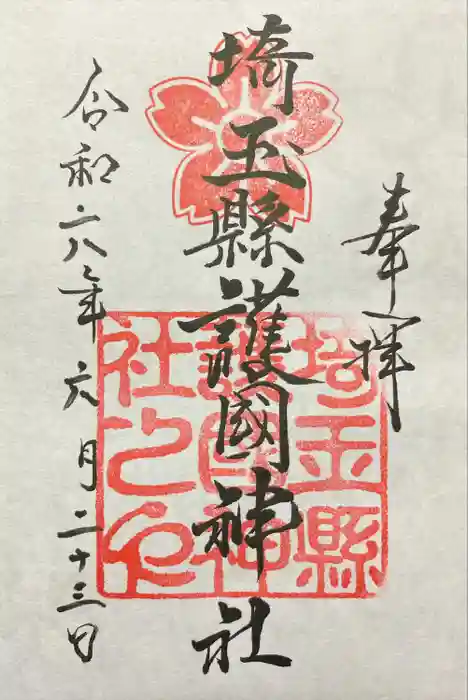 奉拝
埼玉縣護國神社
令和六年六月二十三日
埼玉縣
護國神
社之印